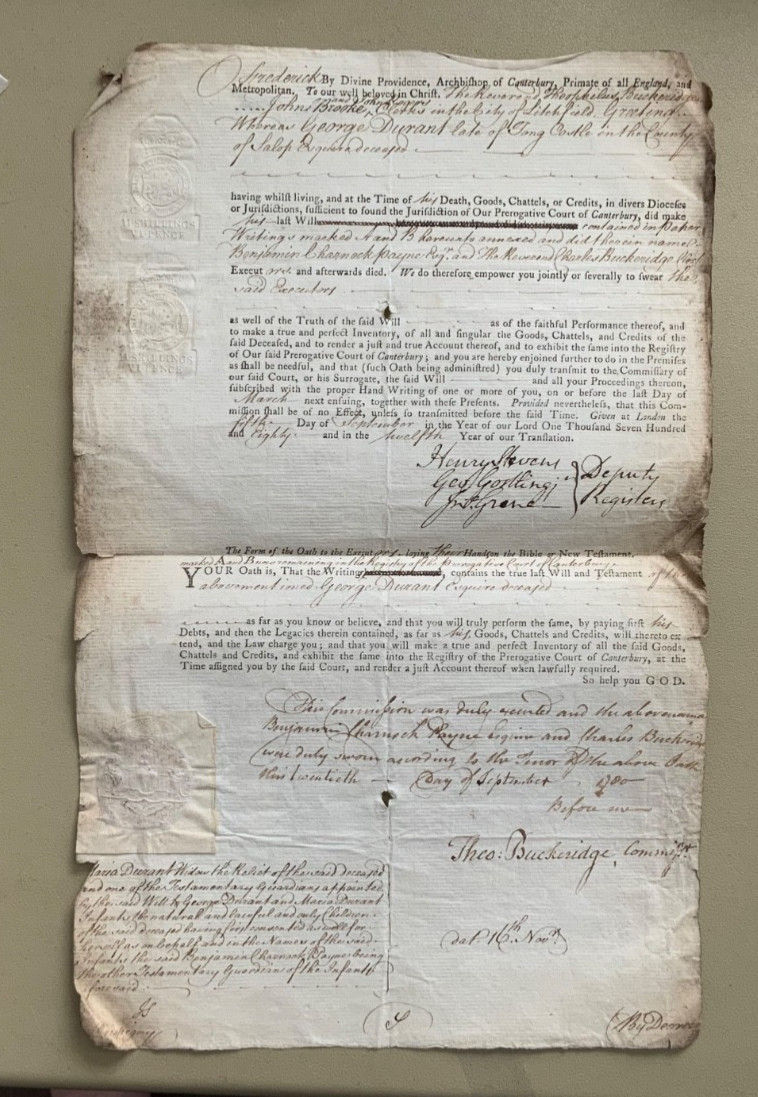 Frederick By Divine Providence, Archbishop of Canterbury, Primate of all England, and
Metropolitan, To our well beloved in Christ, The Reverend Theophilus Buckeridge
John Brooke, Clerks in the City of Litchfield. Greeting.
Whereas George Durant late of Tong Castle in the County
of Salop Esquire deceased
having whilst living, and at the Time of his Death, Goods, Chattels, or Credits, in divers Dioceses
or Jurisdictions, sufficient to found the Jurisdiction of Our Prerogative Court of Canterbury, did make
his last Will contained in Paper
Writings marked A and B hereunto annexed and did therein name
Benjamin Charnock Payne Esqr. and The Reverend Charles Buckeridge
Executors and afterwards died. We do therefore empower you jointly or severally to swear the
said Executors
as well of the Truth of the said Will as of the faithful Performance thereof, and
to make a true and perfect Inventory, of all and singular the Goods, Chattels, and Credits of the
said Deceased, and to render a just and true Account thereof, and to exhibit the same into the Registry
of Our said Prerogative Court of Canterbury; and you are hereby enjoined further to do in the Premises
as shall be needful, and that (such Oath being administred) you duly transmit to the Commissary of
our said Court, or his Surrogate, the said Will and all your Proceedings thereon,
subscribed with the proper Hand Writing of one or more of you, on or before the last Day of
March next ensuing, together with these Presents. Provided nevertheless, that this Com-
mission shall be of no Effect, unless so transmitted before the said Time. Given at London the
fifth Day of September in the Year of our Lord One Thousand Seven Hundred
and Eighty and in the twelfth Year of our Translation.
Henry Stevens
Geo. Gostling
Deputy
Registers
The Form of the Oath to the Executors laying their Hands on the Bible or New Testament.
marked A and B now remaining in the Registry of the Prerogative Court of Canterbury
YOUR Oath is, That the Writing, contains the true last Will and Testament of the
abovementioned George Durant Esquire deceased
as far as you know or believe, and that you will truly perform the same, by paying first his
Debts, and then the Legacies therein contained, as far as his Goods, Chattels and Credits, will thereto ex
tend, and the Law charge you; and that you will make a true and perfect Inventory of all the said Goods,
Chattels and Credits, and exhibit the same into the Registry of the Prerogative Court of Canterbury, at the
Time assigned you by the said Court, and render a just Account thereof when lawfully required.
So help you GOD.
This Commission was duly executed and the above named
Benjamin Charnock Payne Esquire and Charles Buckeridge
were duly sworn according to the Tenor of the above Oath
this twentieth Day of September 1780
Before me
Theo: Buckeridge, Commissr.
Maria Durant Widow the Relict of the said deceased
and one of the Testamentary Guardians appointed
by the said Will to George Durant and Maria Durant
Infants the natural and lawful and only Children
of the said deceased having first consented as well for
herself as on behalf and in the Names of the said
Infants the said Benjamin Charnock Payne being
the other Testamentary Guardian of the Infants
dat. 16th. Novr.